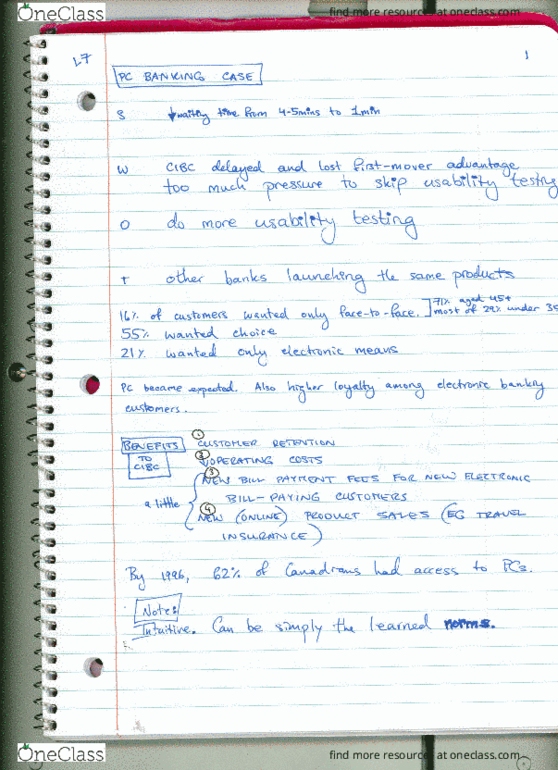 OneClass
find more resources at oneclass.com
L7
1
PC BANKING CASE
S ↓waiting time from 4-5mins to 1min
W CIBC delayed and lost first-mover advantage
too much pressure to skip usability testing
O do more usability testing
T other banks launching the same products
16% of customers wanted only face-to-face. ] 71% aged 45+
most of 29% under 35
55% wanted choice
21% wanted only electronic means
PC became expected. Also higher loyalty among electronic banking
customers.
BENEFITS TO CIBC
① CUSTOMER RETENTION
② ↓OPERATING COSTS
a little { ③ NEW BILL PAYMENT FEES FOR NEW ELECTRONIC
BILL-PAYING CUSTOMERS
④ NEW (ONLINE) PRODUCT SALES (EG TRAVEL
INSURANCE)
By 1996, 62% of Canadians had access to PCs.
Note:
Intuitive. Can be simply the learned norms.
OneClass
find more resources at oneclass.com